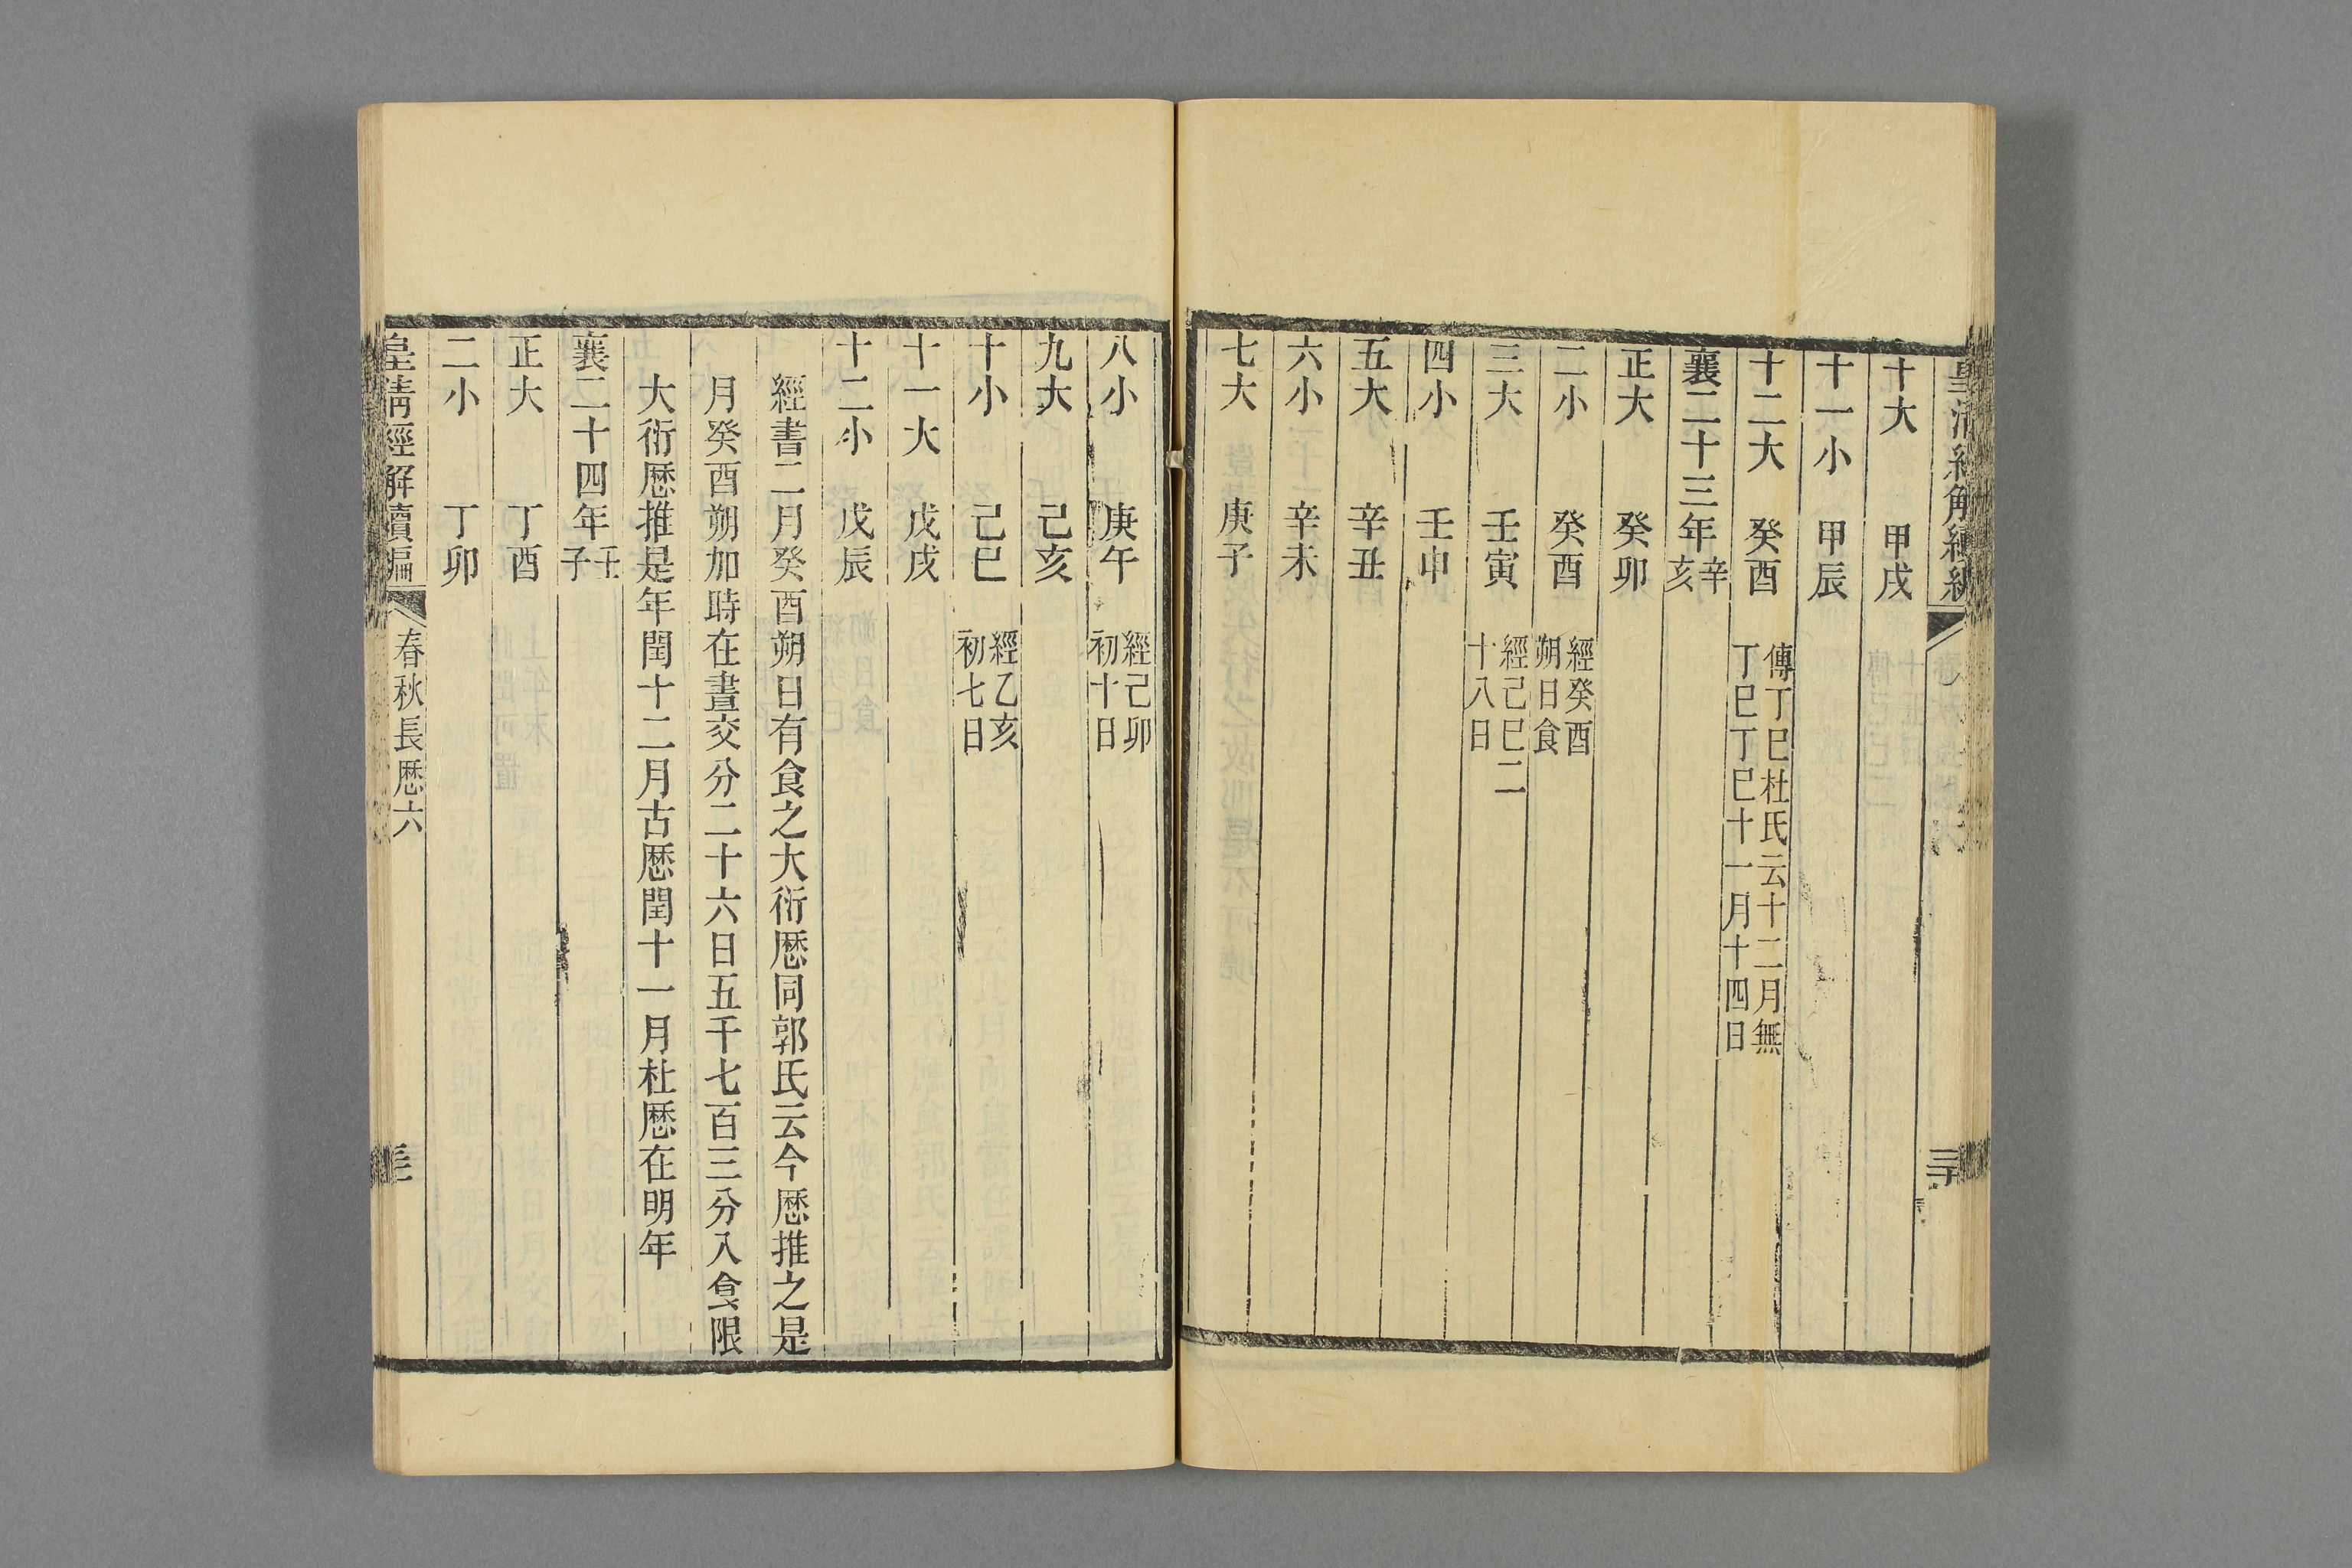 十大　甲戌
十一小　甲辰
十二大　癸酉　傳丁巳杜氏云十二月無
丁巳丁巳十一月十四日
襄二十三年辛亥
正大　癸卯
二小　癸酉　經癸酉
朔日食
三大　壬寅　經己巳二
十八日
四小　壬申
五大　辛丑
六小　辛未
七大　庚子
八小　庚午　經己卯
初十日
九大　己亥
十小　己巳　經乙亥
初七日
十一大　戊戌
十二小　戊辰
經書二月癸酉朔日有食之大衍厯同郭氏云今厯推之是
月癸酉朔加時在晝交分二十六日五千七百三分入食限
大衍厯推是年閏十二月古厯閏十一月杜厯在明年
襄二十四年壬子
正大　丁酉
二小　丁卯
皇清經解續編　春秋長厯六